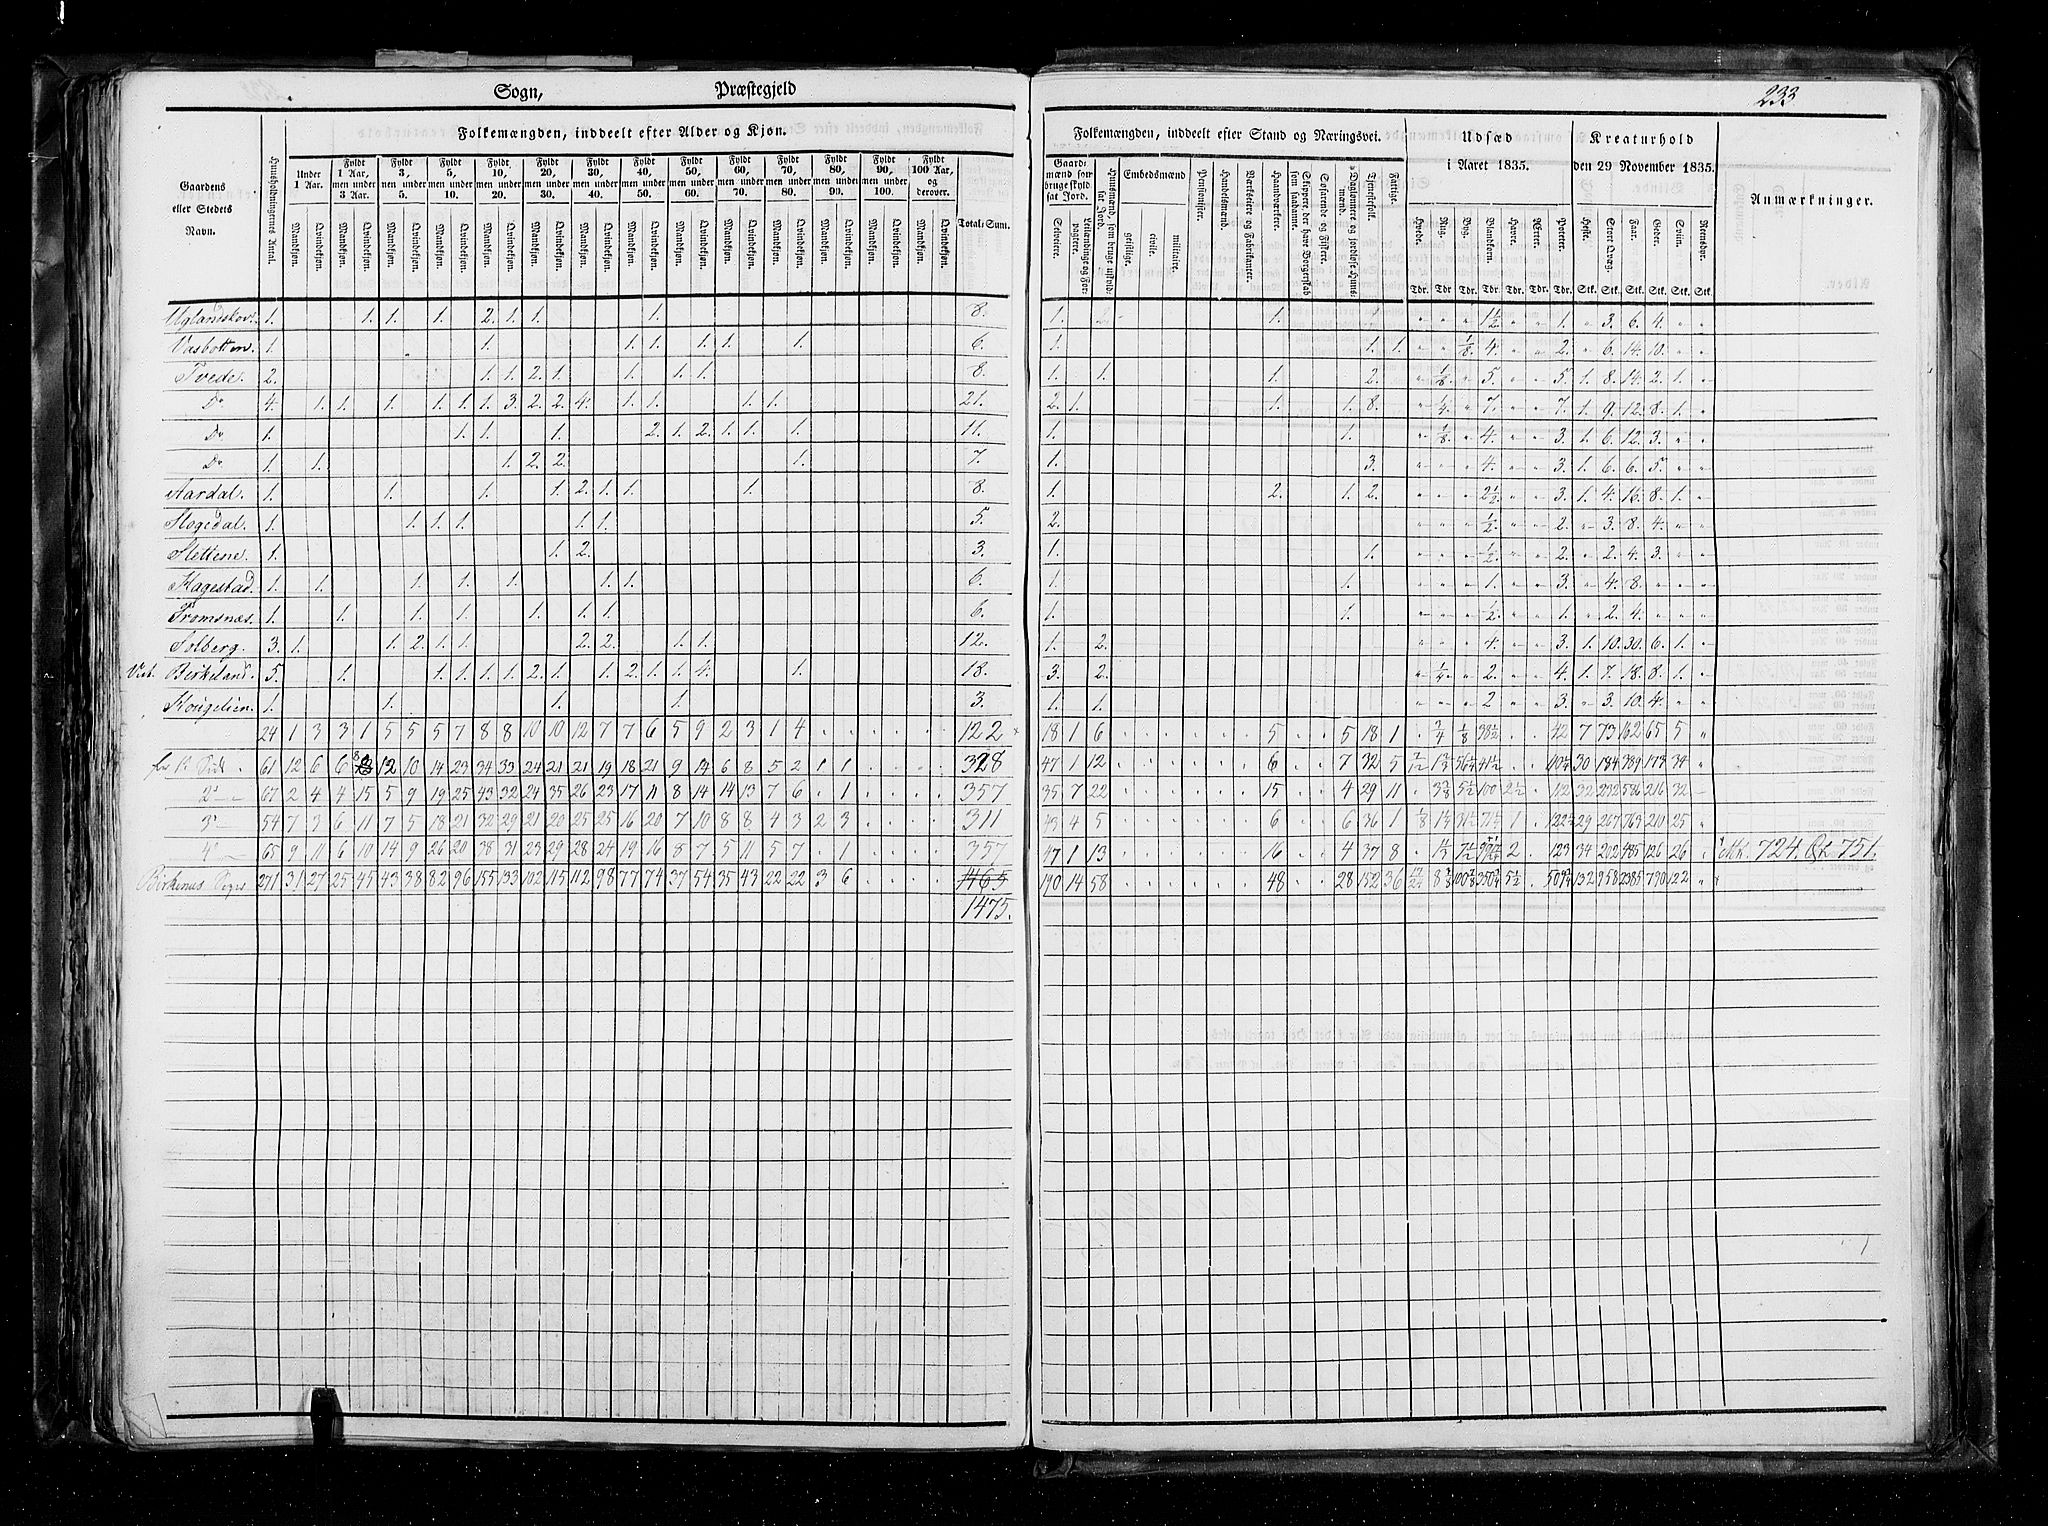 233
Sogn, Præstegjeld
Gaardens eller Stedets Navn.
Huusholdningernes Antal.
Folkemængden, inddeelt efter Alder og Kjøn.
Under 1 Aar.
Fyldt 1 Aar, men under 3 Aar.
Fyldt 3, men under 5.
Fyldt 5, men under 10.
Fyldt 10, men under 20.
Fyldt 20, men under 30.
Fyldt 30, men under 40.
Fyldt 40, men under 50.
Fyldt 50, men under 60.
Fyldt 60, men under 70.
Fyldt 70, men under 80.
Fyldt 80, men under 90.
Fyldt 90, men under 100.
Fyldt 100 Aar, og derover.
Mandkjøn. Qvindekjøn.
Total-Sum.
Folkemængden, inddeelt efter Stand og Næringsvei.
Gaardmænd som bruge skyldsat Jord.
Selveiere.
Leilændinge og Forpagtere.
Huusmænd, som bruge uskyldsat Jord.
Embedsmænd
geistlige. civile. militaire.
Pensionister.
Handelsmænd.
Værkseiere og Fabrikanter.
Haandværkere.
Skippere, der have Borgerskab som saadanne.
Søfarende og Fiskere.
Daglønnere og jordløse Huusmænd.
Tjenestefolk.
Fattige.
Udsæd i Aaret 1835.
Hvede. Rug. Byg. Blandkorn. Havre. Ærter. Poteter.
Tdr. Tdr. Tdr. Tdr. Tdr. Tdr. Tdr.
Kreaturhold den 29 November 1835.
Heste. Stort Qvæg. Faar. Geder. Sviin. Reensdyr.
Stk. Stk. Stk. Stk. Stk. Stk.
Anmærkninger.
Uglandskov. 1. 1. 1. 1. 2. 1. 1. 1. 8. 1. 1. 1½ 1. 3. 6. 4.
Vasbotten. 1. 1. 1. 1. 1. 1. 1. 6. 1. 1. 1. ⅛ 4. 2. 6. 14. 10.
Tvede. 2. 1. 1. 2. 1. 1. 1. 1. 8. 1. 1. 1. 2. ⅛ 5. 5. 1. 8. 14. 2. 1.
Do 4. 1. 1. 1. 1. 1. 1. 3. 2. 2. 4. 1. 1. 1. 1. 21. 2. 1. 1. 1. 8. ¼ 7. 7. 1. 9. 12. 8. 1.
Do 1. 1. 1. 1. 2. 1. 2. 1. 1. 1. 11. 1. 1. ⅛ 4. 3. 1. 6. 12. 3.
Do 1. 1. 1. 2. 2. 1. 7. 1. 3. 4. 3. 1. 6. 6. 5.
Aardal. 1. 1. 1. 1. 2. 1. 1. 1. 8. 1. 2. 1. 2. 2½ 3. 1. 4. 16. 8. 1.
Stogedal. 1. 1. 1. 1. 1. 1. 5. 2. ½ 2. 3. 8. 4.
Slettene. 1. 1. 2. 3. 1. 1. ½ 2. 2. 4. 3.
Hagestad. 1. 1. 1. 1. 1. 1. 1. 6. 1. 1. 1. 3. 4. 8.
Tromsnæs. 1. 1. 1. 1. 1. 1. 1. 6. 1. 1. ½ 1. 2. 4.
Solberg. 3. 1. 1. 2. 1. 1. 2. 2. 1. 1. 12. 1. 2. 4. 3. 1. 10. 30. 6. 1.
Birkeland. 5. 1. 1. 1. 1. 1. 2. 1. 1. 2. 1. 1. 4. 1. 18. 3. 2. ¼ 2. 4. 1. 7. 18. 8. 1.
1. 1. 1. 1. 3. 1. 1. 2 3. 3. 10. 4.
24 1 3 3 1 5 5 5 7 8 8 10 10 12 7 7 6 5 9 2 3 1 4 122 18 1 6 5 5 18 1 ¾ ⅛ 38½ 42 7 73 162 65 5
61 12 6 6 8 12 10 14 23 34 33 24 21 21 19 18 21 9 14 6 8 5 2 1 1 328 47 1 12 6 7 32 5 30 184 389 173 34
2d 67 2 4 4 15 5 9 19 25 43 32 24 35 26 23 17 11 8 14 14 13 7 6 1 357 35 7 22 15 4 29 11 100 2½ 112 32 232 586 216 32
3d 54 7 3 6 11 7 5 18 21 32 29 21 20 25 25 16 20 7 10 8 8 4 3 2 3 311 43 4 5 6 6 36 1 1 29 267 763 210 25
4d 65 9 11 6 10 14 9 26 20 38 31 23 29 28 24 19 16 8 7 5 11 5 7 1 357 47 1 13 16 4 37 8 2 123 34 202 485 126 26 Mk. 724. Qk. 751.
Birkenæs Sogn 271 31 27 25 45 43 38 82 96 155 133 102 115 112 98 77 74 37 54 35 43 22 22 3 6 1465 190 14 58 48 28 152 36 5½ 132 958 2385 790 122
1475.